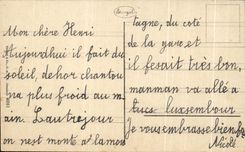 Mon chère Henri
Aujourdhui il fait du
soleil, dehor chantou
a plus froid au m
ain. Lautrejour
on nest monté
tagne, du coté
de la gare, et
il fesait très bon,
manman va allé a
luxembour
Je vous embrasse bien
Nicole